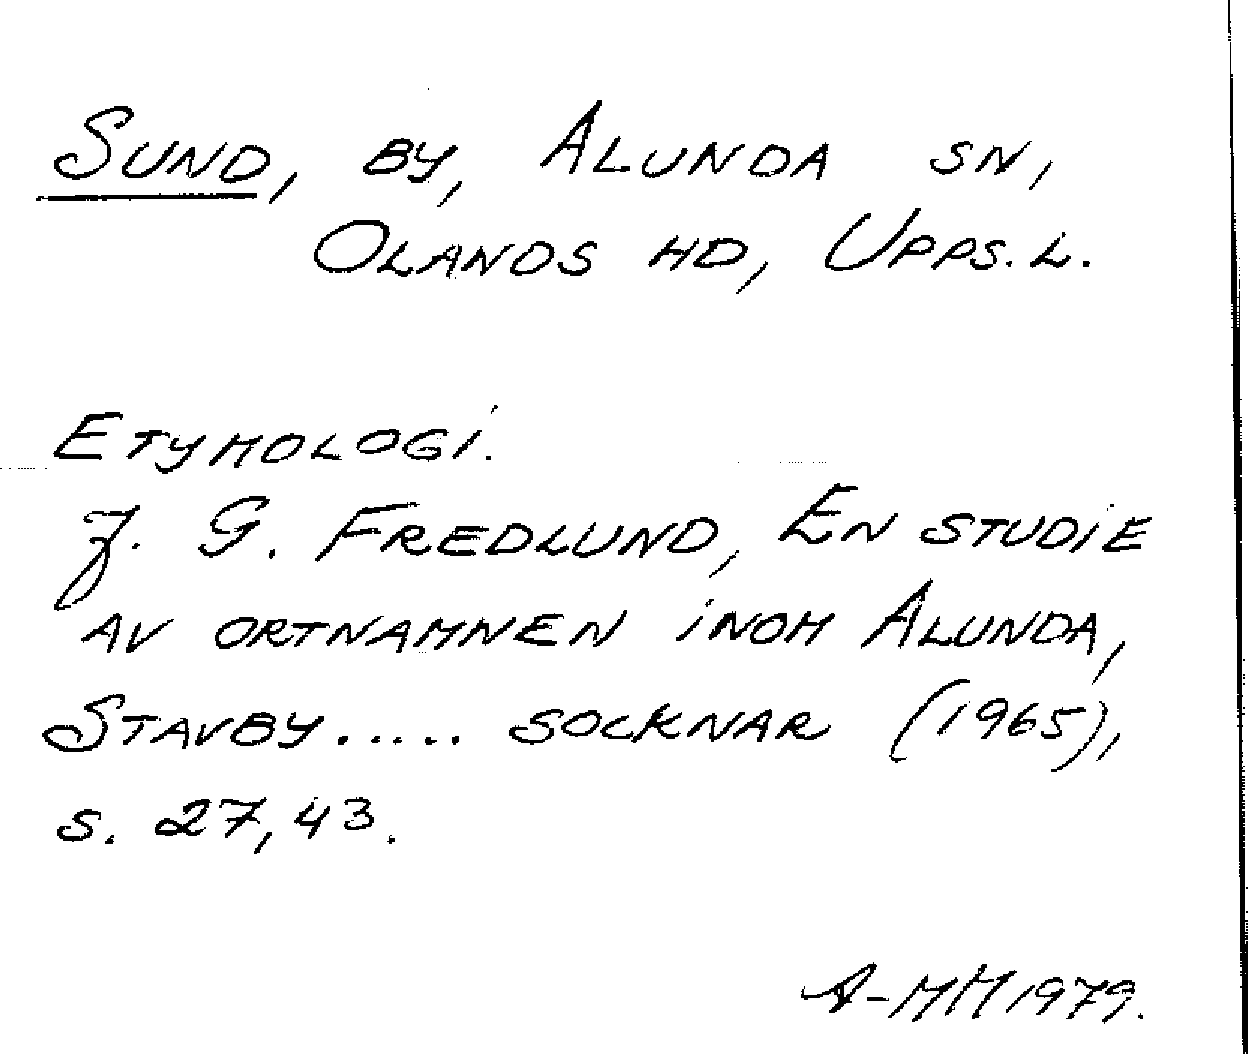 Sund, by, Alunda sn,
Olands hd, Upps. l.
Etymologi.
J. G. Fredlund, En studie
av ortnamnen inom Alunda,
Stavby..... socknar (1965),
s. 27, 43.
A-MM 1979.